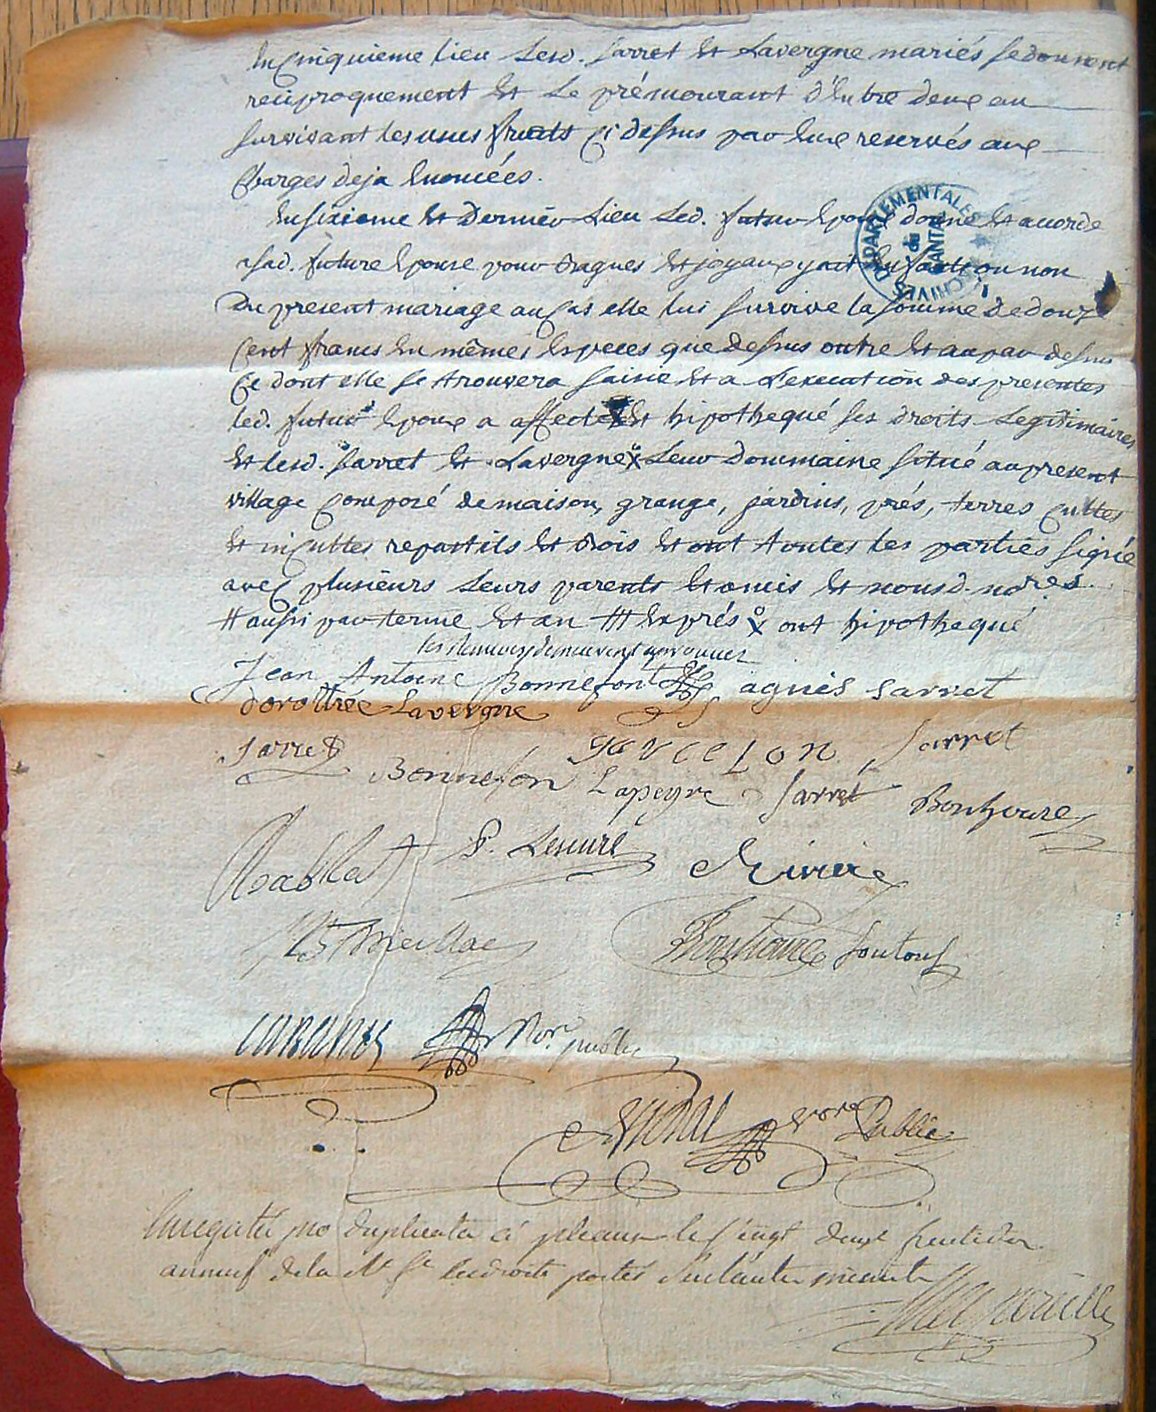 En cinquieme lieu Lesd. Sarret Et Lavergne mariés se donnent
reciproquement Et Le prémourant d'Entre deux au
survivant les usufruits cy dessus par Eux reservés aux
charges deja Enoncées.
En sixieme Et Dernier Lieu Led. futur Epoux donne Et accorde
a sad. future Epouse pour bagues Et joyaux y ait Enfants ou non
Du present mariage au cas elle lui survive la somme de douze
cent francs En mêmes Especes que dessus outre Et au par dessus
Ce dont elle se trouvera saisie Et a L'execution des presentes
led. futur Epoux a affecté Et hipothequé ses droits Legitimaires
Et lesd. Sarret Et Lavergne Leur Doumaine situé au present
village composé de maison, grange, jardins, prés, terres cultes
Et incultes repastils Et Bois Et ont toutes les parties signé
avec plusieurs Leurs parents Et amis Et nous d. nores.
# aussi par terme Et an ## Exprés x ont hipothequé
les renvoys demeurent aprouvés
Jean Antoine Bonnefont agnès sarret
dorothée Lavergne
Sarret Bonnefon Garcelon Sarret
Lapeyre Sarret Bonhoure
Rabhat P. Lescure Riviere
Meillac
Soutoul
Cabanes Nore. public
Vidal Nore Public
Enregistré pro duplicata à pleaux le vingt deux fructidor
an neuf de la R. f. les droits portés sur l'autre minute